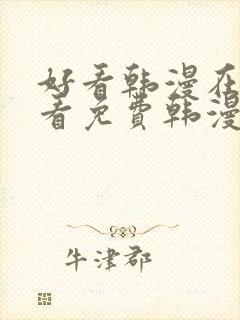 好看韩漫在
看免费韩漫
牛津郡